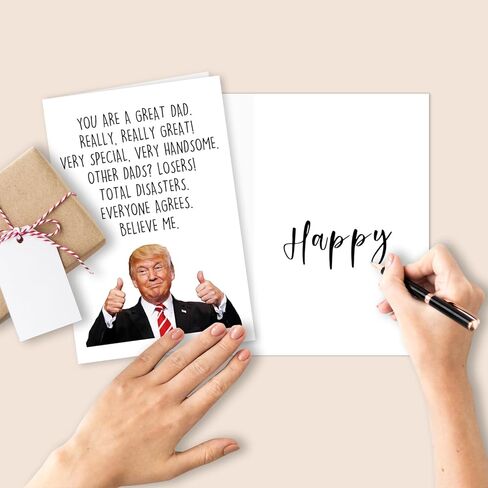 YOU ARE A GREAT DAD.
REALLY, REALLY GREAT!
VERY SPECIAL, VERY HANDSOME.
OTHER DADS? LOSERS!
TOTAL DISASTERS.
EVERYONE AGREES.
BELIEVE ME.
Happy